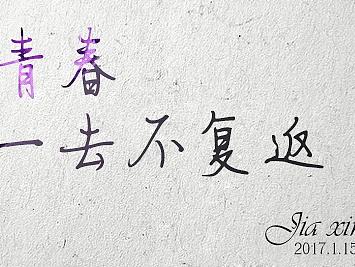 青春
一去不复返
Jia xin
2017.1.15